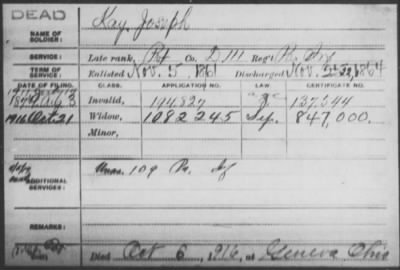 DEAD
NAME OF SOLDIER: Kay, Joseph
SERVICE: Late rank, Pvt Co. D, 111 Reg't Pa. Inf
TERM OF SERVICE: Enlisted Nov. 5, 1861 Discharged Nov. 1864
DATE OF FILING. CLASS. APPLICATION NO. LAW. CERTIFICATE NO.
Aug 3 Invalid, 194827 137,344
1916 Oct 21 Widow, 1082245 Sep. 847,000.
Minor,
ADDITIONAL SERVICES: Unas. 109 Pa. Inf
REMARKS:
Died Oct 6, 1916, at Geneva Ohio